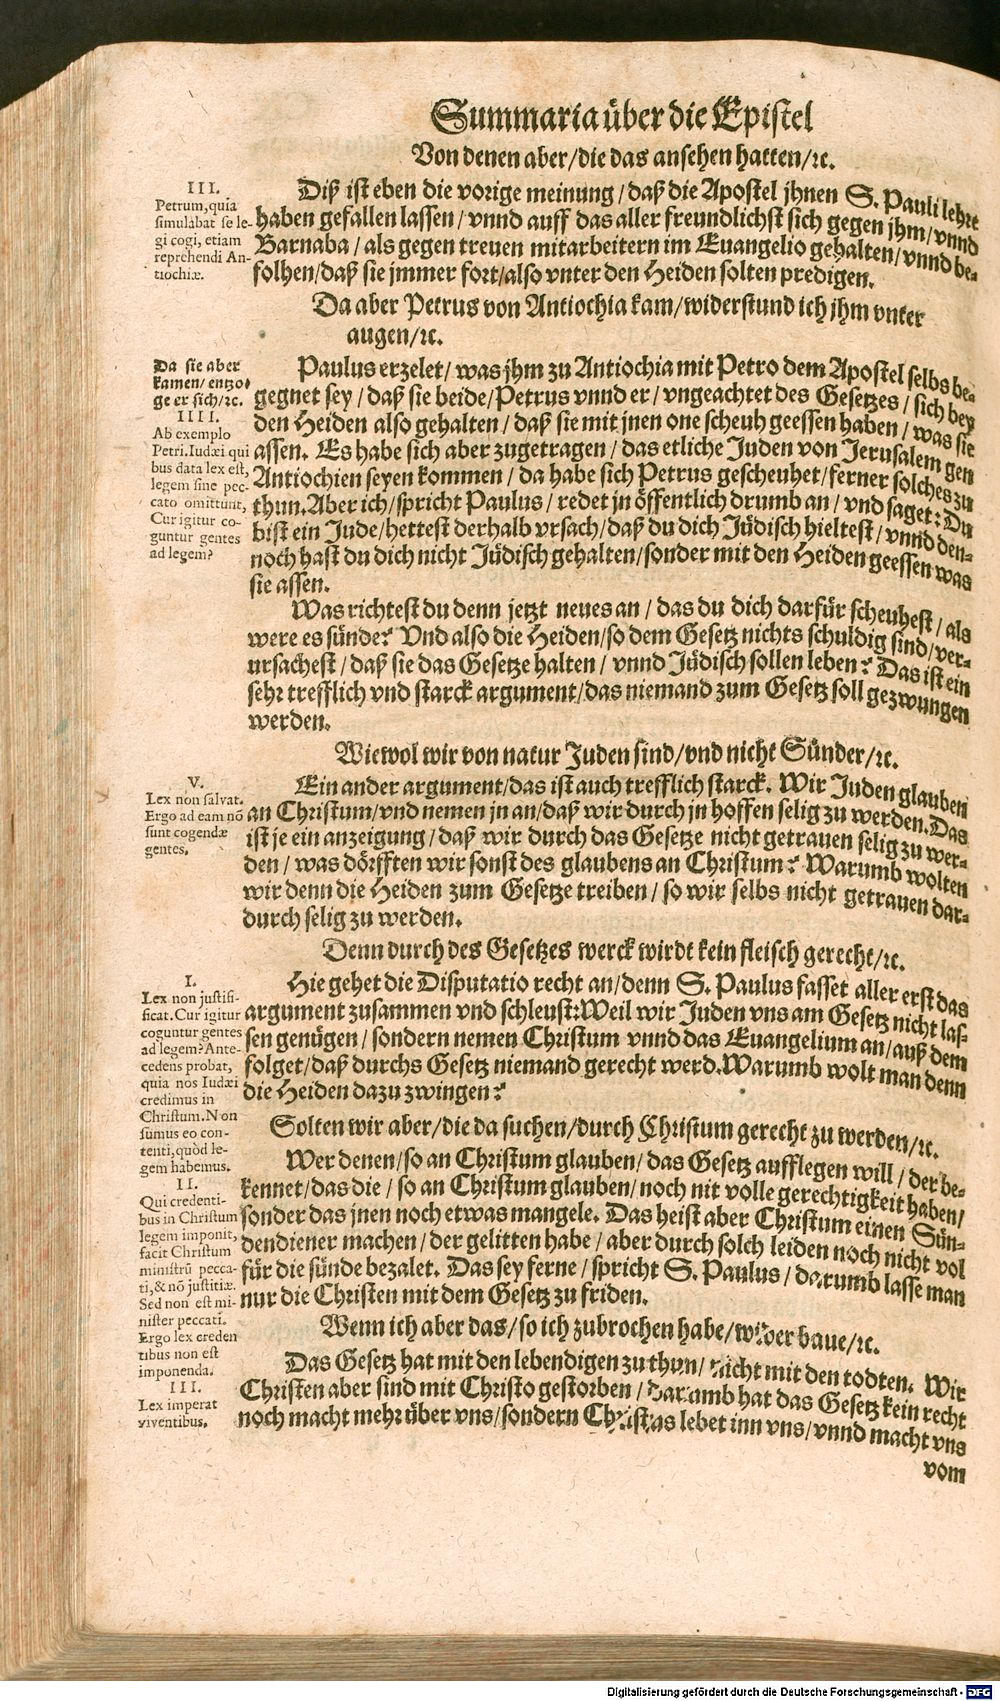 Summaria über die Epistel
Von denen aber/die das ansehen hatten/ꝛc.
III.
Petrum,quia
simulabat se le-
gi cogi, etiam
reprehendi An-
tiochiæ.
Diß ist eben die vorige meinung/daß die Apostel jhnen S. Pauli lehre
haben gefallen lassen/vnnd auff das aller freundlichst sich gegen jhm/vnnd
Barnaba/als gegen treuen mitarbeitern im Euangelio gehalten/vnnd be-
folhen/daß sie jmmer fort/also vnter den Heiden solten predigen.
Da aber Petrus von Antiochia kam/widerstund ich jhm vnter
augen/ꝛc.
Da sie aber
kamen/entzo-
ge er sich/ꝛc.
IIII.
Ab exemplo
Petri.Iudæi qui
bus data lex est,
legem sine pec-
cato omittunt,
Cur igitur co-
guntur gentes
ad legem?
Paulus erzelet/was jhm zu Antiochia mit Petro dem Apostel selbs be-
gegnet sey/daß sie beide/Petrus vnnd er/vngeachtet des Gesetzes/sich bey
den Heiden also gehalten/daß sie mit jnen one scheuh geessen haben/was sie
assen. Es habe sich aber zugetragen/das etliche Juden von Jerusalem gen
Antiochien seyen kommen/da habe sich Petrus gescheuhet/ferner solches zu
thun.Aber ich/spricht Paulus/redet jn öffentlich drumb an/vnd saget: Du
bist ein Jude/hettest derhalb vrsach/daß du dich Jüdisch hieltest/vnnd den-
noch hast du dich nicht Jüdisch gehalten/sonder mit den Heiden geessen was
sie assen.
Was richtest du denn jetzt neues an/das du dich darfür scheuhest/als
were es sünde? Vnd also die Heiden/so dem Gesetz nichts schuldig sind/ver-
ursachest/daß sie das Gesetze halten/vnnd Jüdisch sollen leben? Das ist ein
sehr trefflich vnd starck argument/das niemand zum Gesetz soll gezwungen
werden.
Wiewol wir von natur Juden sind/vnd nicht Sünder/ꝛc.
V.
Lex non salvat.
Ergo ad eam nō
sunt cogendæ
gentes.
Ein ander argument/das ist auch trefflich starck. Wir Juden glauben
an Christum/vnd nemen jn an/daß wir durch jn hoffen selig zu werden.Das
ist je ein anzeigung/daß wir durch das Gesetze nicht getrauen selig zu wer-
den/was dörfften wir sonst des glaubens an Christum? Warumb wolten
wir denn die Heiden zum Gesetze treiben/so wir selbs nicht getrauen dar-
durch selig zu werden.
Denn durch des Gesetzes werck wirdt kein fleisch gerecht/ꝛc.
I.
Lex non justifi-
ficat.Cur igitur
coguntur gentes
ad legem?Ante-
cedens probat,
quia nos Iudæi
credimus in
Christum.Non
sumus eo con-
tenti,quòd le-
gem habemus.
Hie gehet die Disputatio recht an/denn S. Paulus fasset aller erst das
argument zusammen vnd schleust:Weil wir Juden vns am Gesetz nicht las-
sen genügen/sondern nemen Christum vnnd das Euangelium an/auß dem
folget/daß durchs Gesetz niemand gerecht werd.Warumb wolt man denn
die Heiden dazu zwingen?
Solten wir aber/die da suchen/durch Christum gerecht zu werden/ꝛc.
II.
Qui credenti-
bus in Christum
legem imponit,
facit Christum
ministrū pecca-
ti,& nō justitiæ.
Sed non est mi-
nister peccati.
Ergo lex creden
tibus non est
imponenda.
Wer denen/so an Christum glauben/das Gesetz aufflegen will/der be-
kennet/das die/so an Christum glauben/noch nit volle gerechtigkeit haben/
sonder das jnen noch etwas mangele. Das heist aber Christum einen Sün-
dendiener machen/der gelitten habe/aber durch solch leiden noch nicht vol
für die sünde bezalet. Das sey ferne/spricht S. Paulus/darumb lasse man
nur die Christen mit dem Gesetz zu friden.
Wenn ich aber das/so ich zubrochen habe/wider baue/ꝛc.
III.
Lex imperat
viventibus.
Das Gesetz hat mit den lebendigen zu thun/nicht mit den todten. Wir
Christen aber sind mit Christo gestorben/darumb hat das Gesetz kein recht
noch macht mehr über vns/sondern Christus lebet inn vns/vnnd macht vns
vom
Digitalisierung gefördert durch die Deutsche Forschungsgemeinschaft - DFG